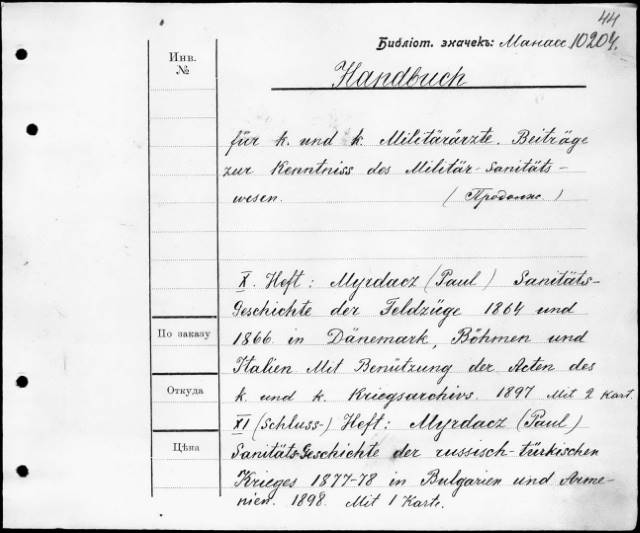 44
Библіот. значекъ: Манасс 10204.
Инв.
№
Handbuch
für k. und k. Militärärzte. Beiträge
zur Kenntniss des Militär-Sanitäts-
wesen. (Продолж.)
X. Heft: Myrdacz (Paul) Sanitäts-
Geschichte der Feldzüge 1864 und
По заказу
1866 in Dänemark, Böhmen und
Italien Mit Benützung der Acten des
Откуда
k. und k. Kriegsarchivs. 1897 Mit 2 Kart.
XI (Schluss-) Heft: Myrdacz (Paul)
Цѣна
Sanitäts-Geschichte der russisch-türkischen
Krieges 1877-78 in Bulgarien und Arme-
nien. 1898. Mit 1 Karte.